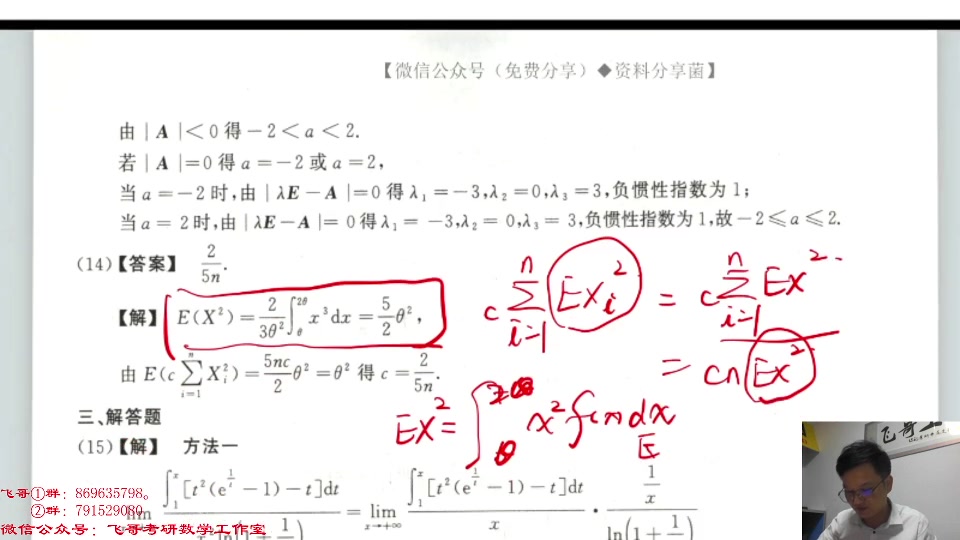 【微信公众号（免费分享）◆资料分享菌】
由|A|<0得-2<a<2.
若|A|=0得a=-2或a=2,
当a=-2时,由|λE-A|=0得λ₁=-3,λ₂=0,λ₃=3,负惯性指数为1;
当a=2时,由|λE-A|=0得λ₁=-3,λ₂=0,λ₃=3,负惯性指数为1,故-2≤a≤2.
(14)【答案】 2/5n.
【解】 E(X²)=2/3θ²∫_θ^{2θ}x³dx=5/2θ²,
c∑_{i=1}^n EXi² = c∑_{i=1}^n EX².
= cnEX²
由E(c∑_{i=1}^n X_i²)=5nc/2θ²=θ²得c=2/5n.
EX²=∫_θ^{2θ} x²f(x)dx
三、解答题
(15)【解】 方法一
∫_1^x[t²(e^{1/t}-1)-t]dt
lim = lim_{x→+∞} ∫_1^x[t²(e^{1/t}-1)-t]dt / x · 1/x / ln(1+1/x)
飞哥①群：869635798。
②群：791529080
微信公众号：飞哥考研数学工作室
飞哥